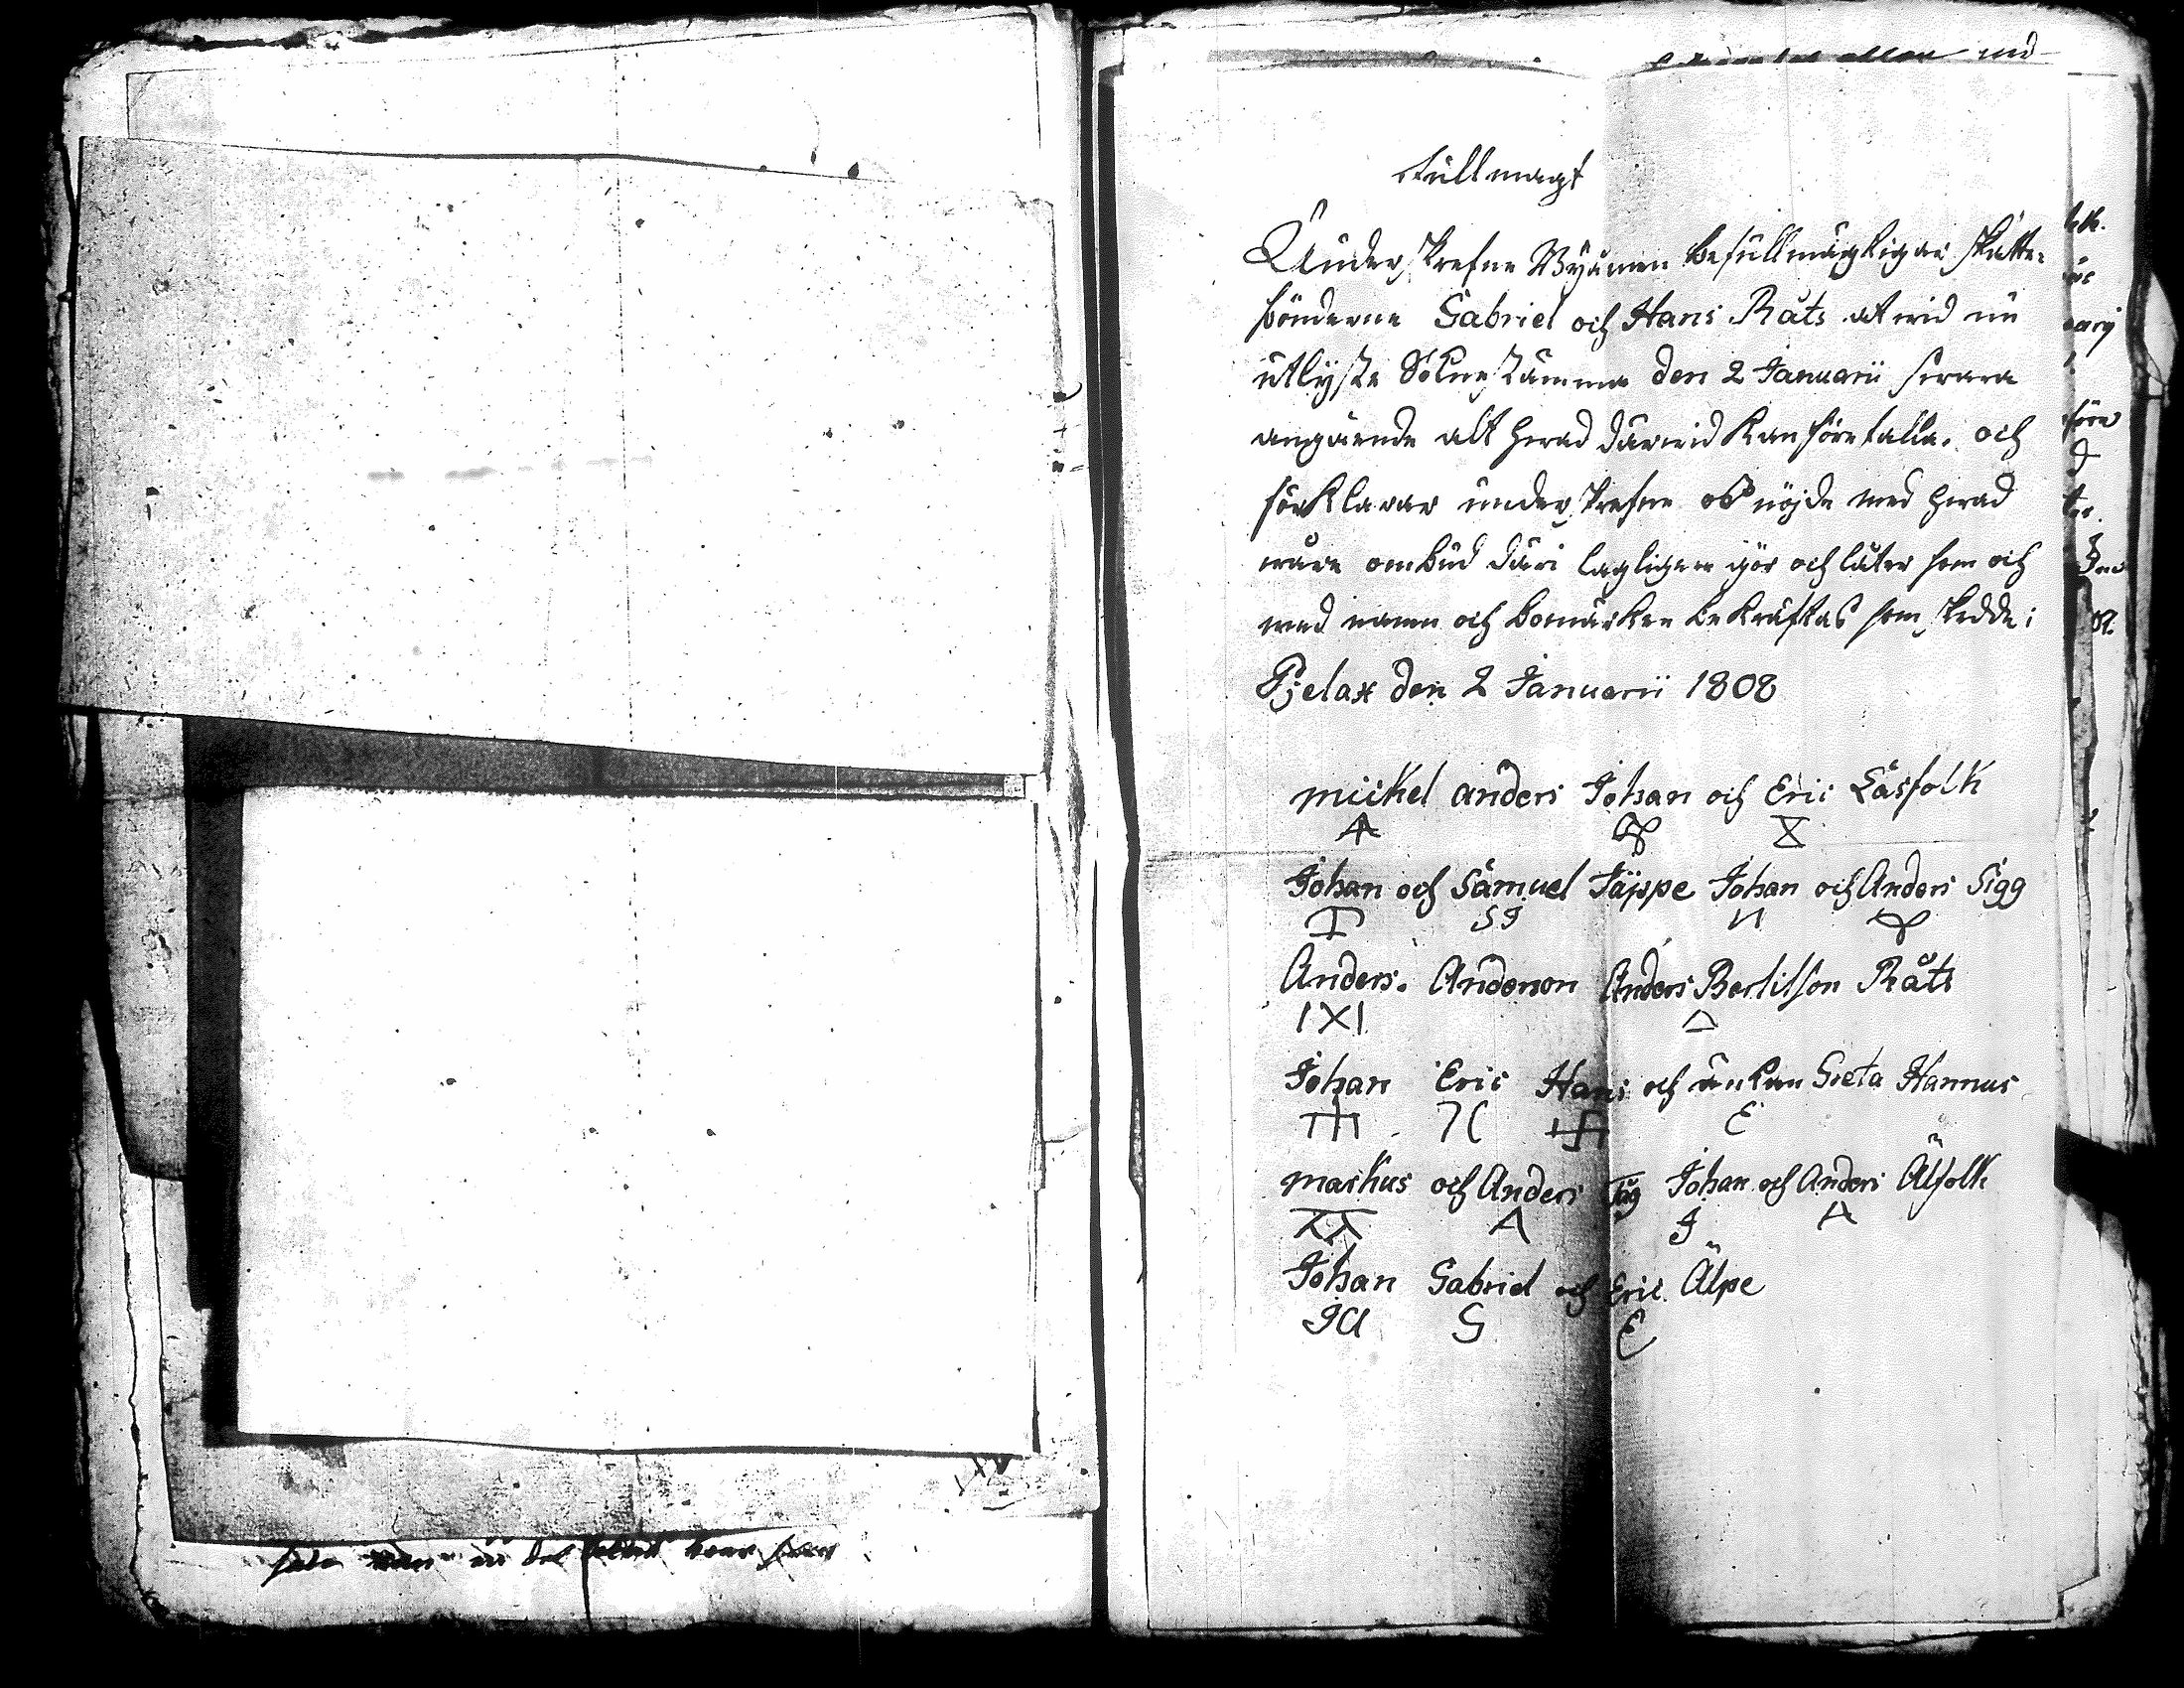 fullmagt
Underskrefne Byamen befullmägtigar skatte-
bönderne Gabriel och Hans Råts at wid nu
utlyste Sokne Stämma den 2 Januarii swara
angående alt hwad därwid kan förefalla. och
förklarar underskrefne oss nöjde med hwad
wåre ombud däri lagligen gör och låter som och
med namn och bomärken bekräftas som skedde i
Pjelax den 2 Januarii 1808
mickel anders Johan och Eric Låsfolk
A
Johan och Samuel Jäppe Johan och Anders Sigg
SJ
Anders. Anderson Anders Bertilson Råts
IXI
Johan Eric Hans och änkan Greta Hannus
E
markus och Anders Tåg Johan och Anders Älfolk
A J A
Johan Gabriel och Eric Älpe
JA G E